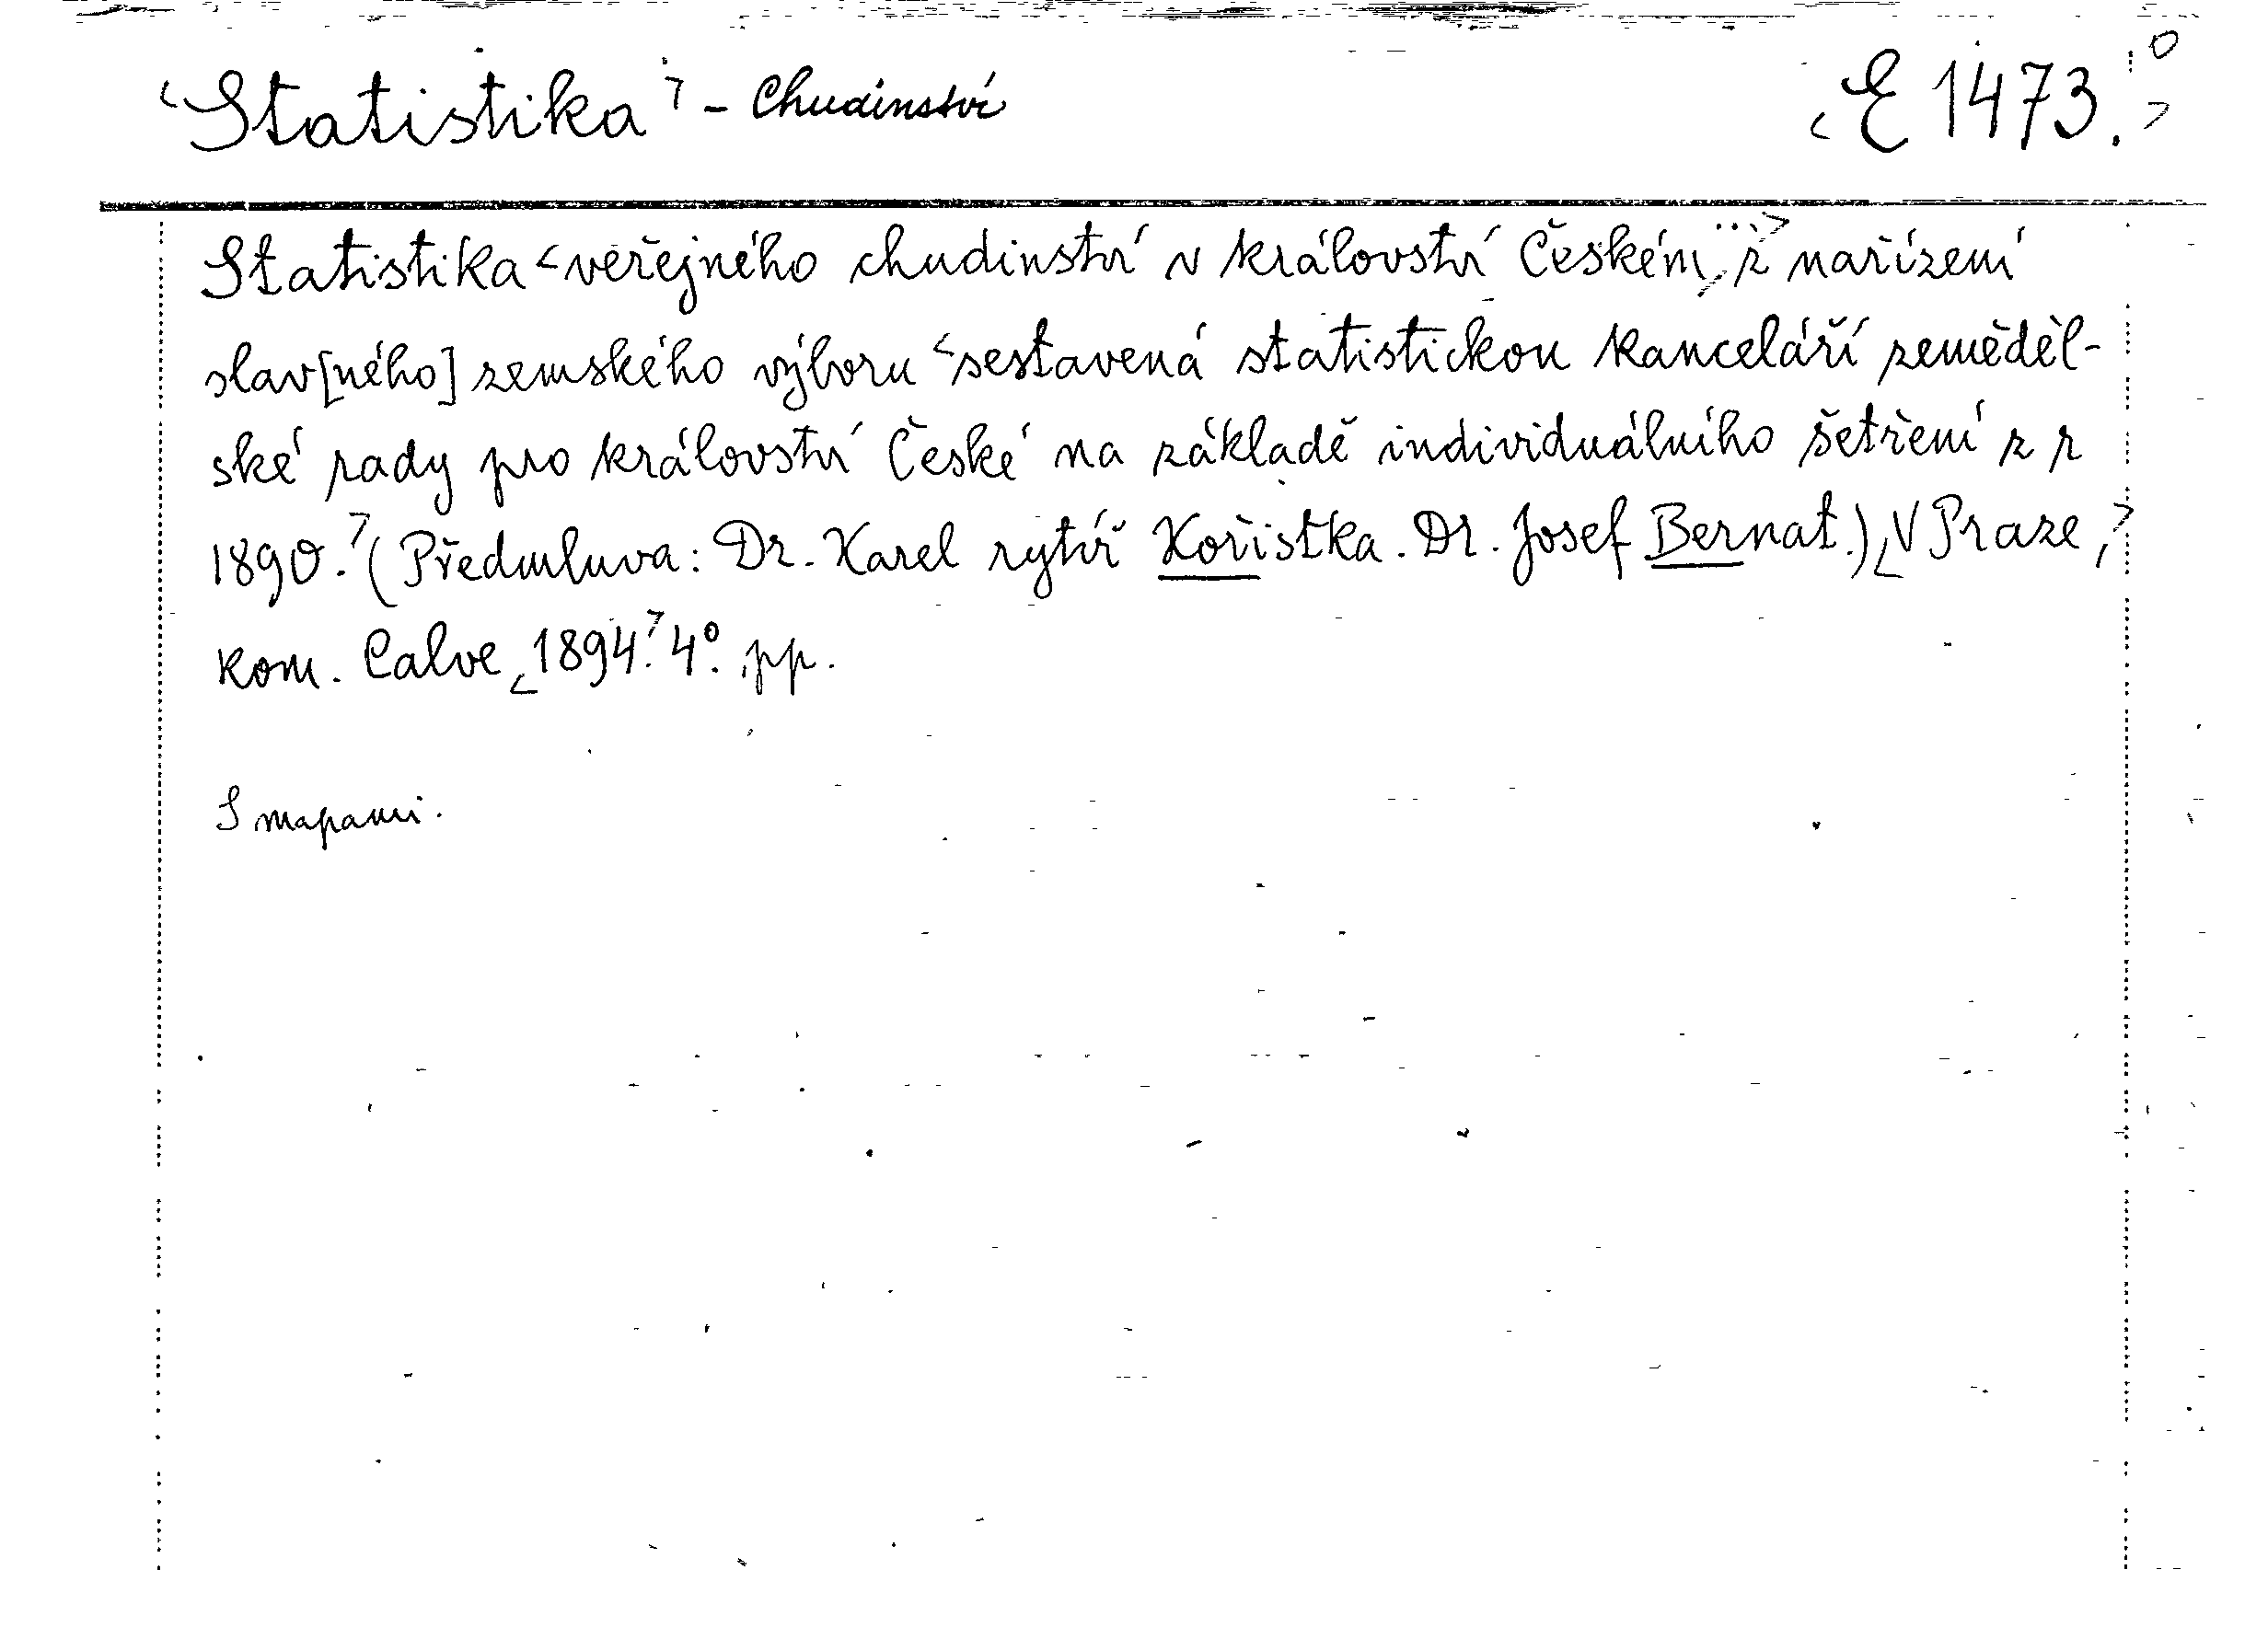 ‹Statistika› - Chudinství
‹E 1473.›⁰
Statistika ‹veřejného chudinství v království Českém,...› z nařízení
slav[ného] zemského výboru ‹sestavená statistickou kanceláří zeměděl-
ské rady pro království České na základě individuálního šetření z r
1890.› (Předmluva: Dr. Karel rytíř Kořistka. Dr. Josef Bernat.) ‹V Praze,›
kom. Calve ‹1894.› 4⁰. pp.
S mapami.